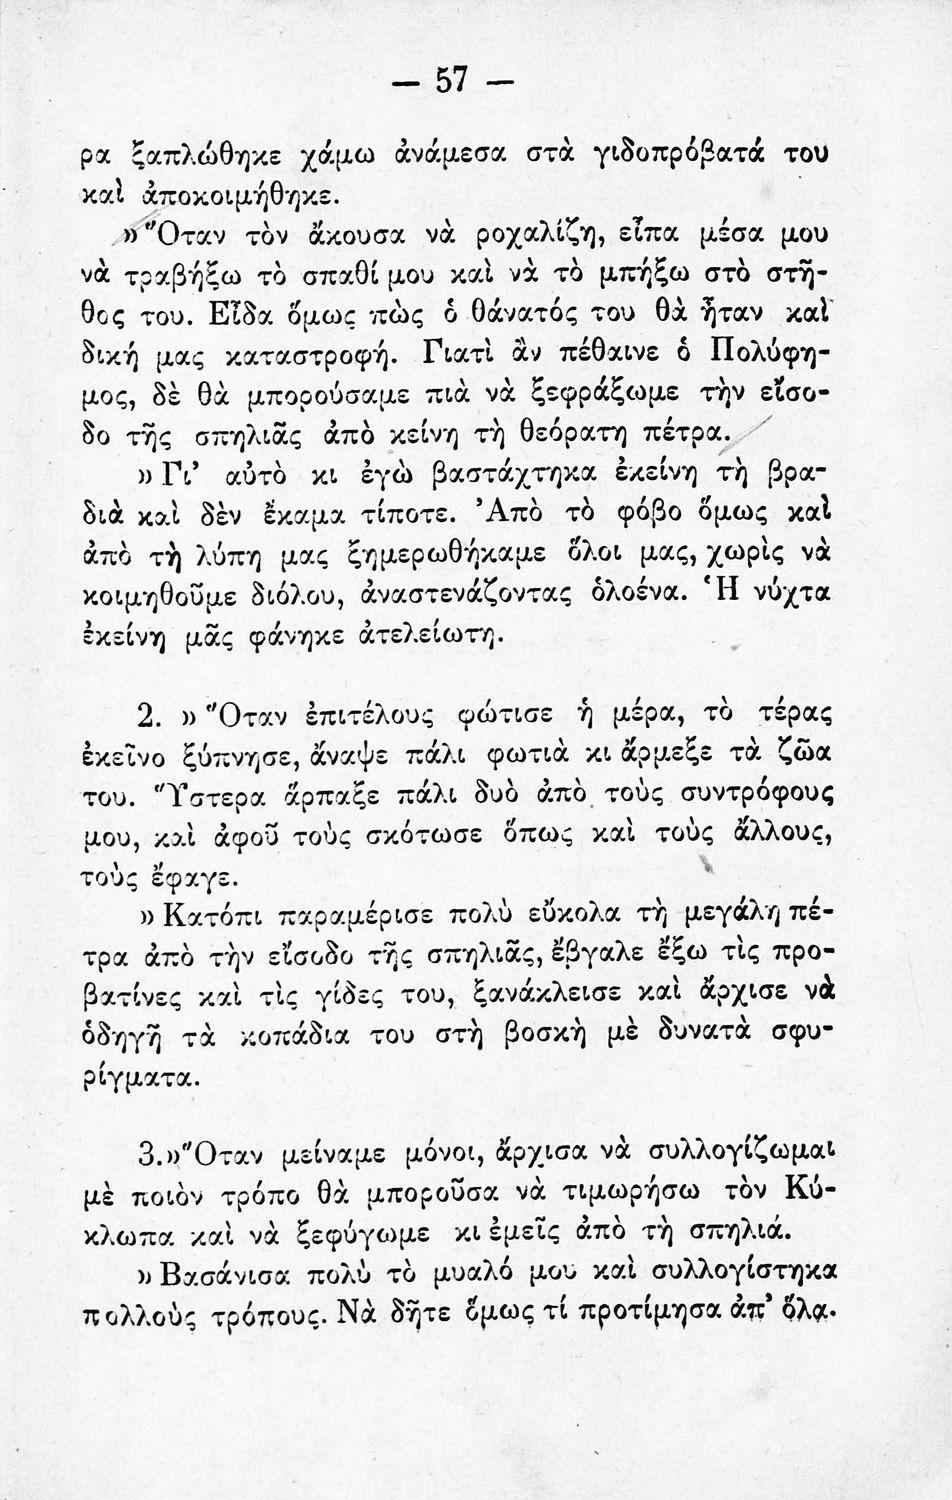 — 57 —
ρα ξαπλώθηκε χάμω ἀνάμεσα στὰ γιδοπρόβατά του
καὶ ἀποκοιμήθηκε.
»Ὅταν τὸν ἄκουσα νὰ ροχαλίζῃ, εἶπα μέσα μου
νὰ τραβήξω τὸ σπαθί μου καὶ νὰ τὸ μπήξω στὸ στῆ-
θος του. Εἶδα ὅμως πὼς ὁ θάνατός του θὰ ἦταν καὶ
δική μας καταστροφή. Γιατὶ ἂν πέθαινε ὁ Πολύφη-
μος, δὲ θὰ μπορούσαμε πιὰ νὰ ξεφράξωμε τὴν εἴσο-
δο τῆς σπηλιᾶς ἀπὸ κείνη τὴ θεόρατη πέτρα.
»Γι’ αὐτὸ κι ἐγὼ βαστάχτηκα ἐκείνη τὴ βρα-
διὰ καὶ δὲν ἔκαμα τίποτε. Ἀπὸ τὸ φόβο ὅμως καὶ
ἀπὸ τὴ λύπη μας ξημερωθήκαμε ὅλοι μας, χωρὶς νὰ
κοιμηθοῦμε διόλου, ἀναστενάζοντας ὁλοένα. Ἡ νύχτα
ἐκείνη μᾶς φάνηκε ἀτελείωτη.
2. »Ὅταν ἐπιτέλους φώτισε ἡ μέρα, τὸ τέρας
ἐκεῖνο ξύπνησε, ἄναψε πάλι φωτιὰ κι ἄρμεξε τὰ ζῶα
του. Ὕστερα ἅρπαξε πάλι δυὸ ἀπὸ τοὺς συντρόφους
μου, καὶ ἀφοῦ τοὺς σκότωσε ὅπως καὶ τοὺς ἄλλους,
τοὺς ἔφαγε.
»Κατόπι παραμέρισε πολὺ εὔκολα τὴ μεγάλη πέ-
τρα ἀπὸ τὴν εἴσοδο τῆς σπηλιᾶς, ἔβγαλε ἔξω τὶς προ-
βατίνες καὶ τὶς γίδες του, ξανάκλεισε καὶ ἄρχισε νὰ
ὁδηγῆ τὰ κοπάδια του στὴ βοσκὴ μὲ δυνατὰ σφυ-
ρίγματα.
3.»Ὅταν μείναμε μόνοι, ἄρχισα νὰ συλλογίζωμαι
μὲ ποιὸν τρόπο θὰ μποροῦσα νὰ τιμωρήσω τὸν Κύ-
κλωπα καὶ νὰ ξεφύγωμε κι ἐμεῖς ἀπὸ τὴ σπηλιά.
»Βασάνισα πολὺ τὸ μυαλό μου καὶ συλλογίστηκα
πολλοὺς τρόπους. Νὰ δῆτε ὅμως τί προτίμησα ἀπ’ ὅλα.